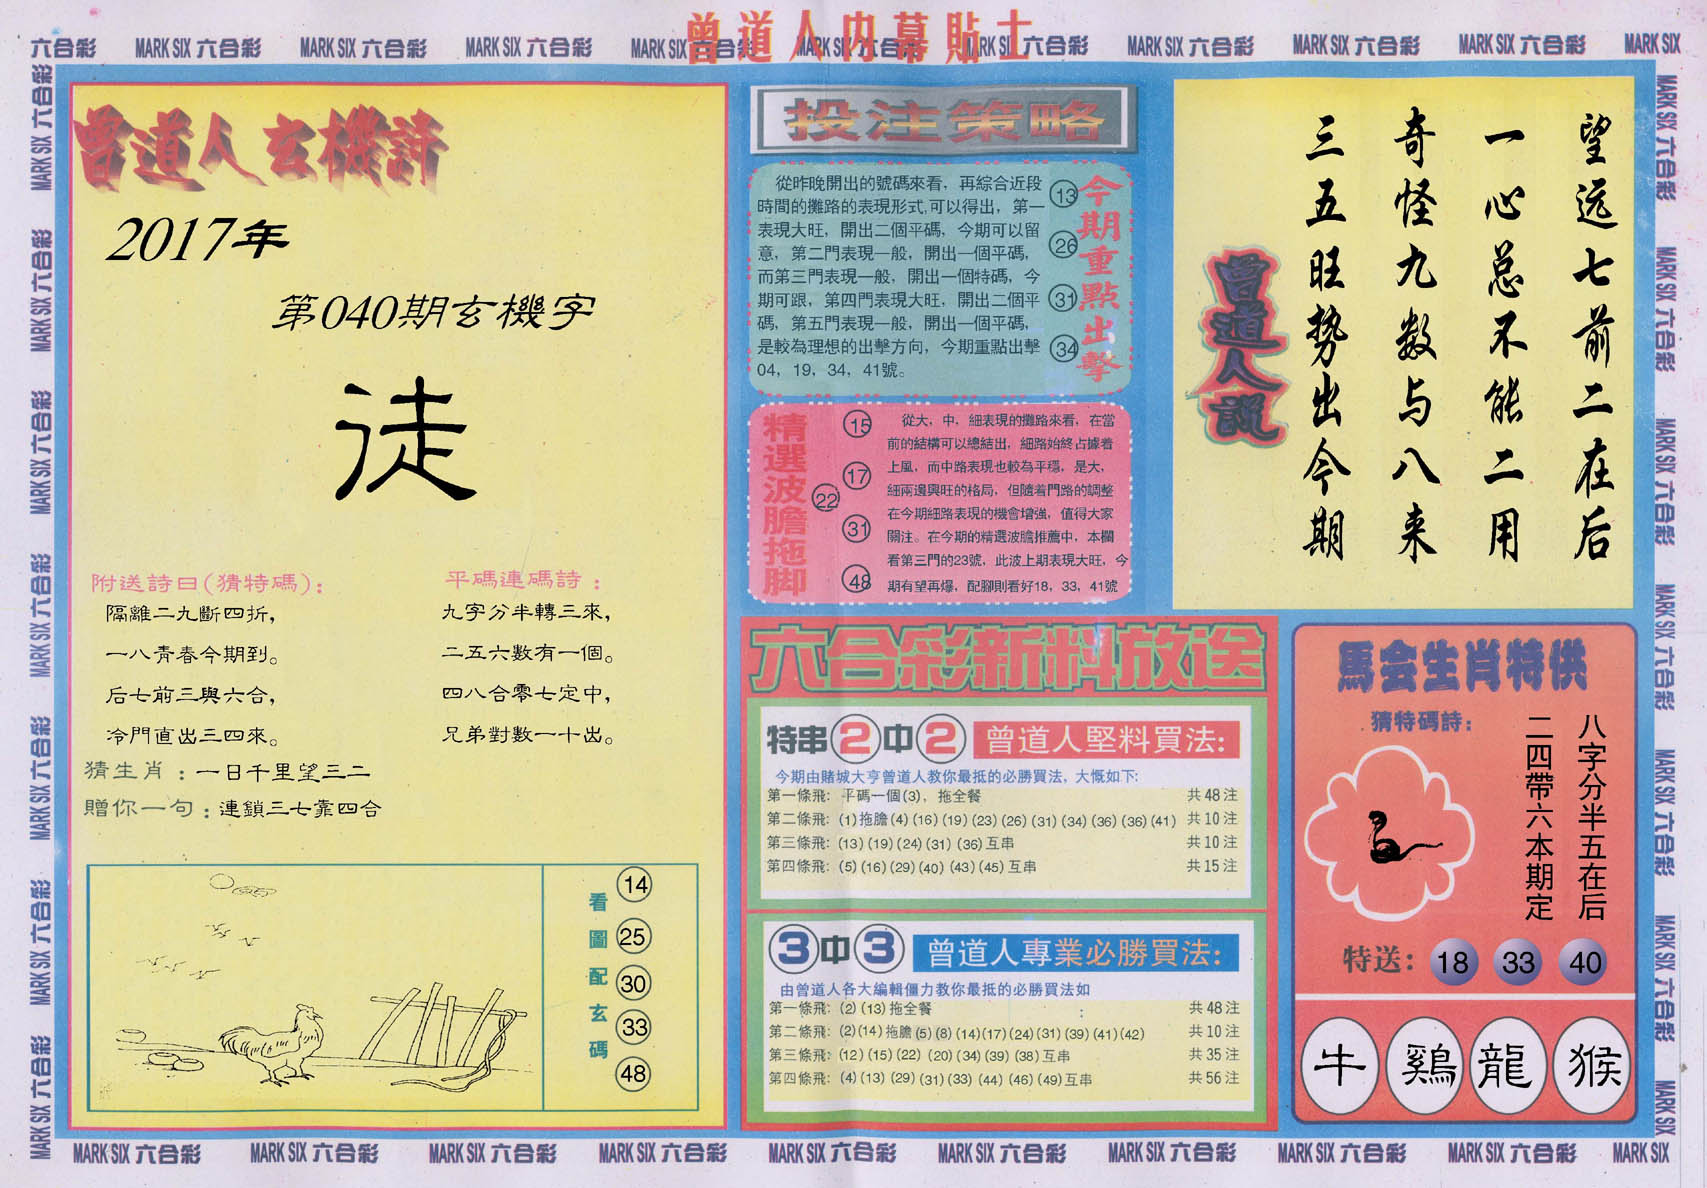 曾道人内幕貼士
六合彩 MARK SIX 六合彩 MARK SIX 六合彩 MARK SIX 六合彩 MARK SIX 六合彩 MARK SIX 六合彩 MARK SIX 六合彩 MARK SIX 六合彩 MARK SIX 六合彩 MARK SIX 六合彩 MARK SIX
曾道人玄機詩
2017年
第040期玄機字
徒
附送詩曰(猜特碼):
隔離二九斷四折,
一八青春今期到。
后七前三與六合,
冷門直出三四來。
平碼連碼詩:
九字分半轉三來,
二五六數有一個。
四八合零七定中,
兄弟對數一十出。
猜生肖:一日千里望三二
贈你一句:連鎖三七靠四合
看圖配玄碼
14
25
30
33
48
投注策略
從昨晚開出的號碼來看，再綜合近段
時間的攤路的表現形式,可以得出，第一
表現大旺，開出二個平碼，今期可以留
意，第二門表現一般，開出一個平碼，
而第三門表現一般，開出一個特碼，今
期可跟，第四門表現大旺，開出二個平
碼，第五門表現一般，開出一個平碼，
是較為理想的出擊方向，今期重點出擊
04，19，34，41號。
13
26
31
34
今期重點出擊
精選波膽拖脚
15
17
22
31
48
從大，中，細表現的攤路來看，在當
前的結構可以總結出，細路始終占據着
上風，而中路表現也較為平穩，是大，
細兩邊興旺的格局，但隨着門路的調整
在今期細路表現的機會增強，值得大家
關注。在今期的精選波膽推薦中，本欄
看第三門的23號，此波上期表現大旺，今
期有望再爆，配腳則看好18，33，41號
六合彩新料放送
特串2中2 曾道人堅料買法:
今期由賭城大亨曾道人教你最抵的必勝買法，大慨如下:
第一條飛: 平碼一個(3)，拖全餐 共48注
第二條飛: (1)拖膽(4)(16)(19)(23)(26)(31)(34)(36)(36)(41) 共10注
第三條飛: (13)(19)(24)(31)(36)互串 共10注
第四條飛: (5)(16)(29)(40)(43)(45)互串 共15注
3中3 曾道人專業必勝買法:
由曾道人各大編輯僵力教你最抵的必勝買法如
第一條飛: (2)(13)拖全餐 共48注
第二條飛: (2)(14)拖膽(5)(8)(14)(17)(24)(31)(39)(41)(42) 共10注
第三條飛: (12)(15)(22)(20)(34)(39)(38)互串 共35注
第四條飛: (4)(13)(29)(31)(33)(44)(46)(49)互串 共56注
望远七前二在后
一心总不能二用
奇怪九数与八来
三五旺势出今期
曾道人説
馬会生肖特供
猜特碼詩:
八字分半五在后
二四帶六本期定
特送: 18 33 40
牛 鷄 龍 猴
MARK SIX 六合彩 MARK SIX 六合彩 MARK SIX 六合彩 MARK SIX 六合彩 MARK SIX 六合彩 MARK SIX 六合彩 MARK SIX 六合彩 MARK SIX 六合彩 MARK SIX 六合彩 MARK SIX